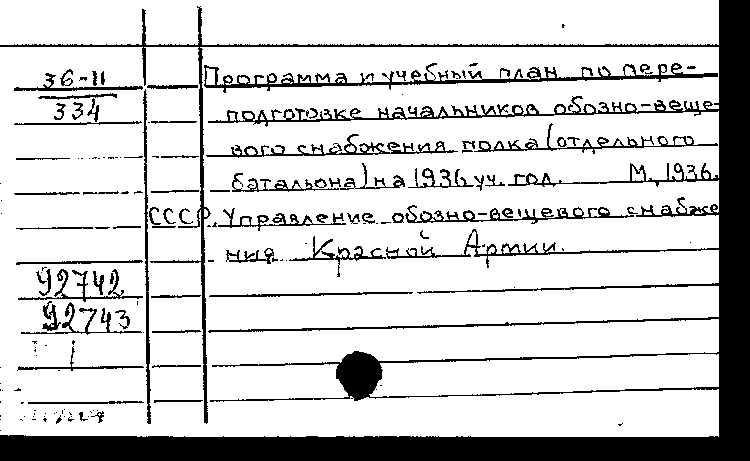 36-11
334
Программа и учебный план по пере-
подготовке начальников обозно-веще-
вого снабжения полка (отдельного
батальона) на 1936 уч. год. М., 1936.
СССР. Управление обозно-вещевого снабже
ния Красной Армии.
92742
92743